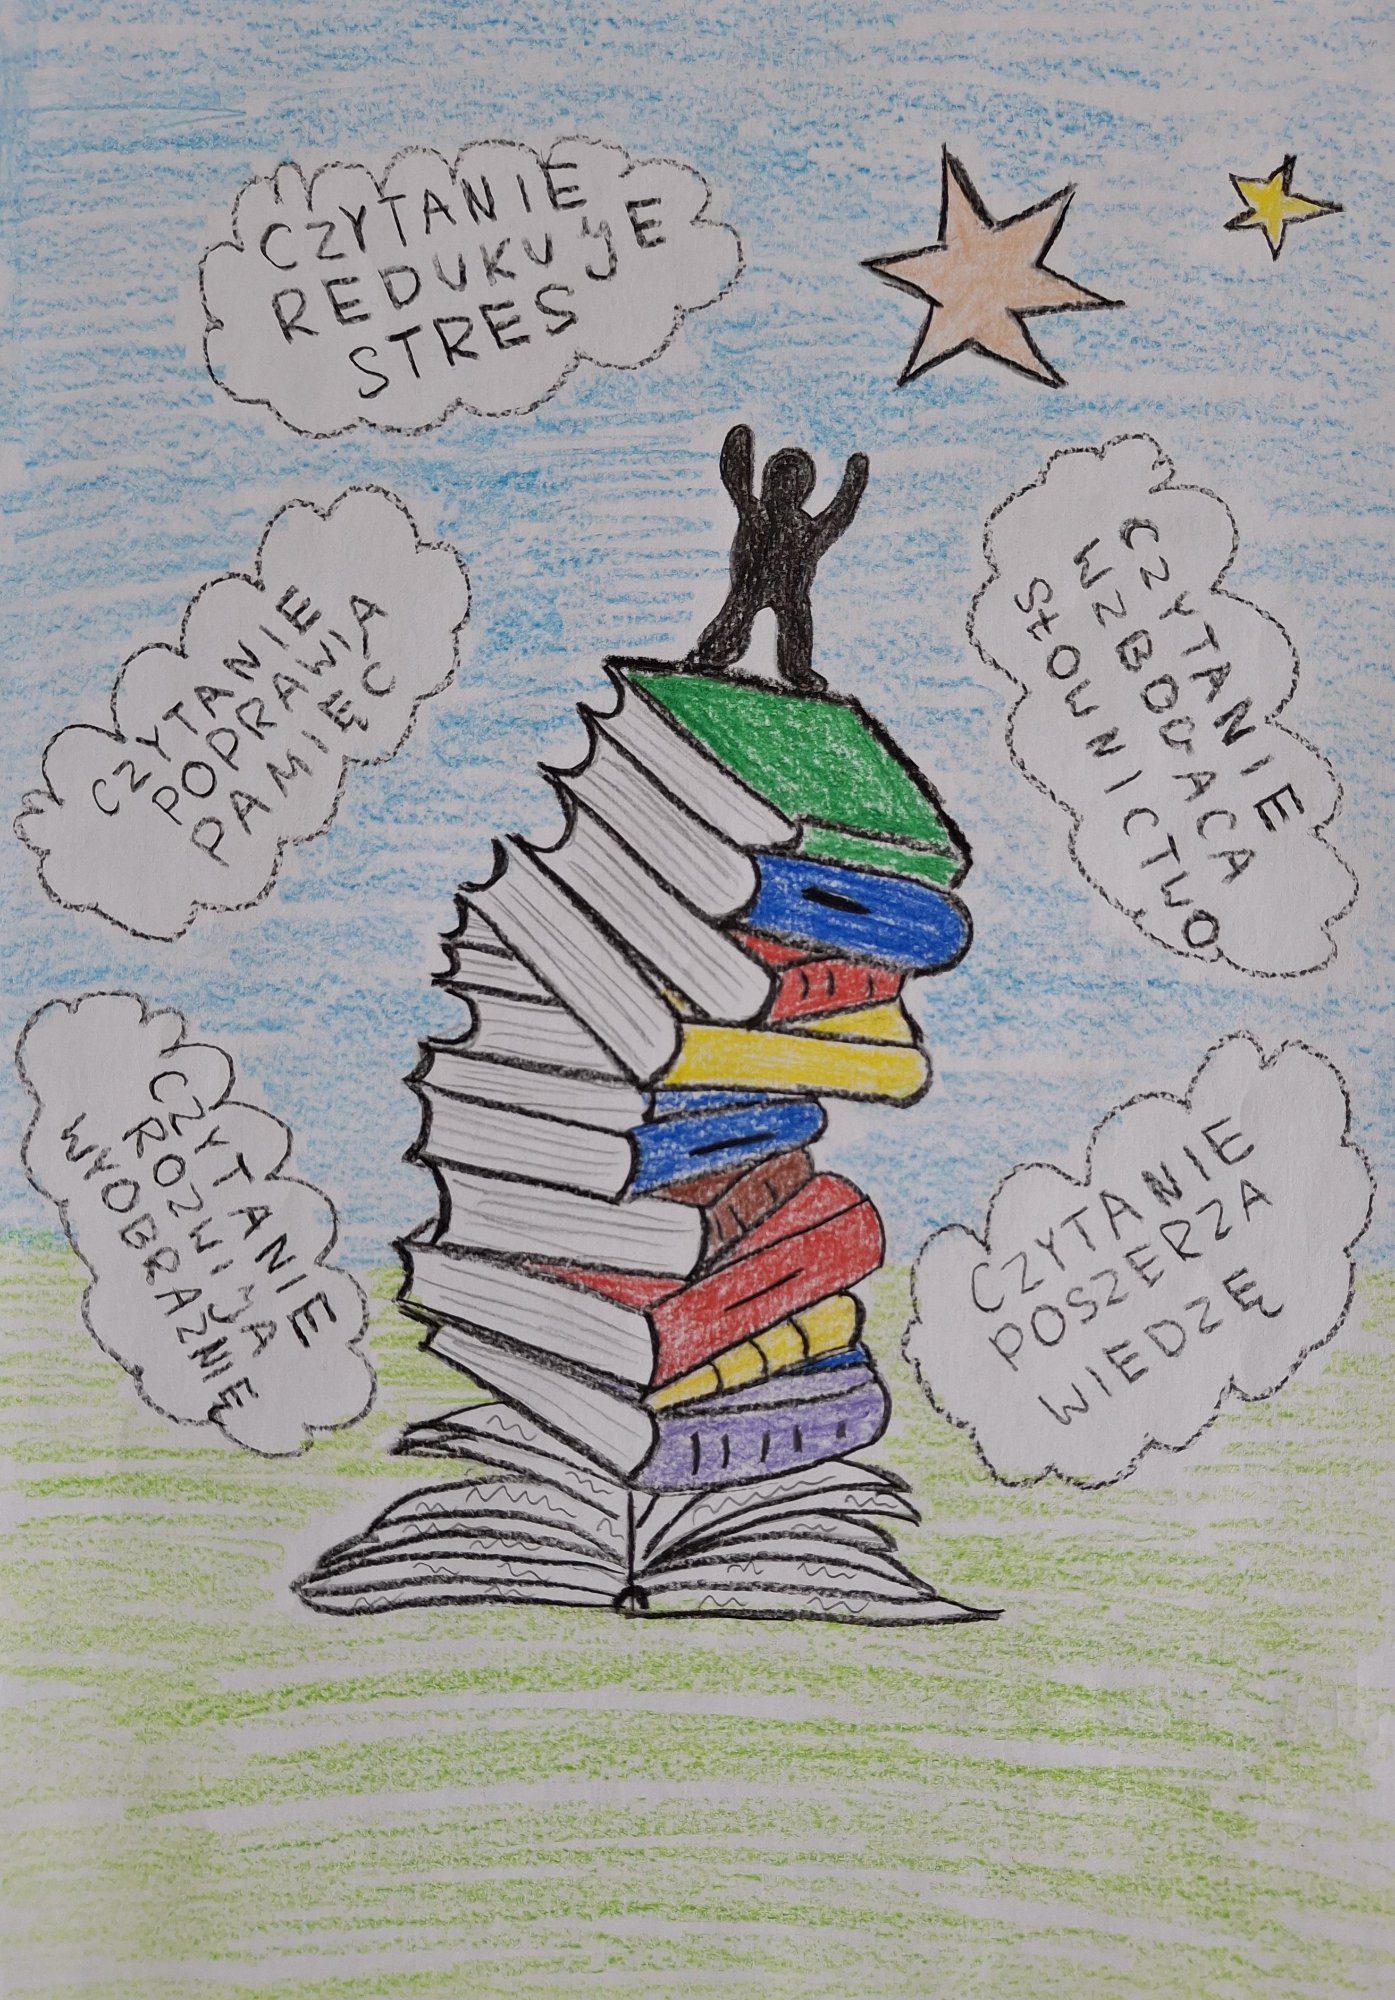 CZYTANIE
REDUKUJE
STRES
CZYTANIE
POPRAWIA
PAMIĘĆ
CZYTANIE
WZBOGACA
SŁOWNICTWO
CZYTANIE
ROZWIJA
WYOBRAŹNIĘ
CZYTANIE
POSZERZA
WIEDZĘ